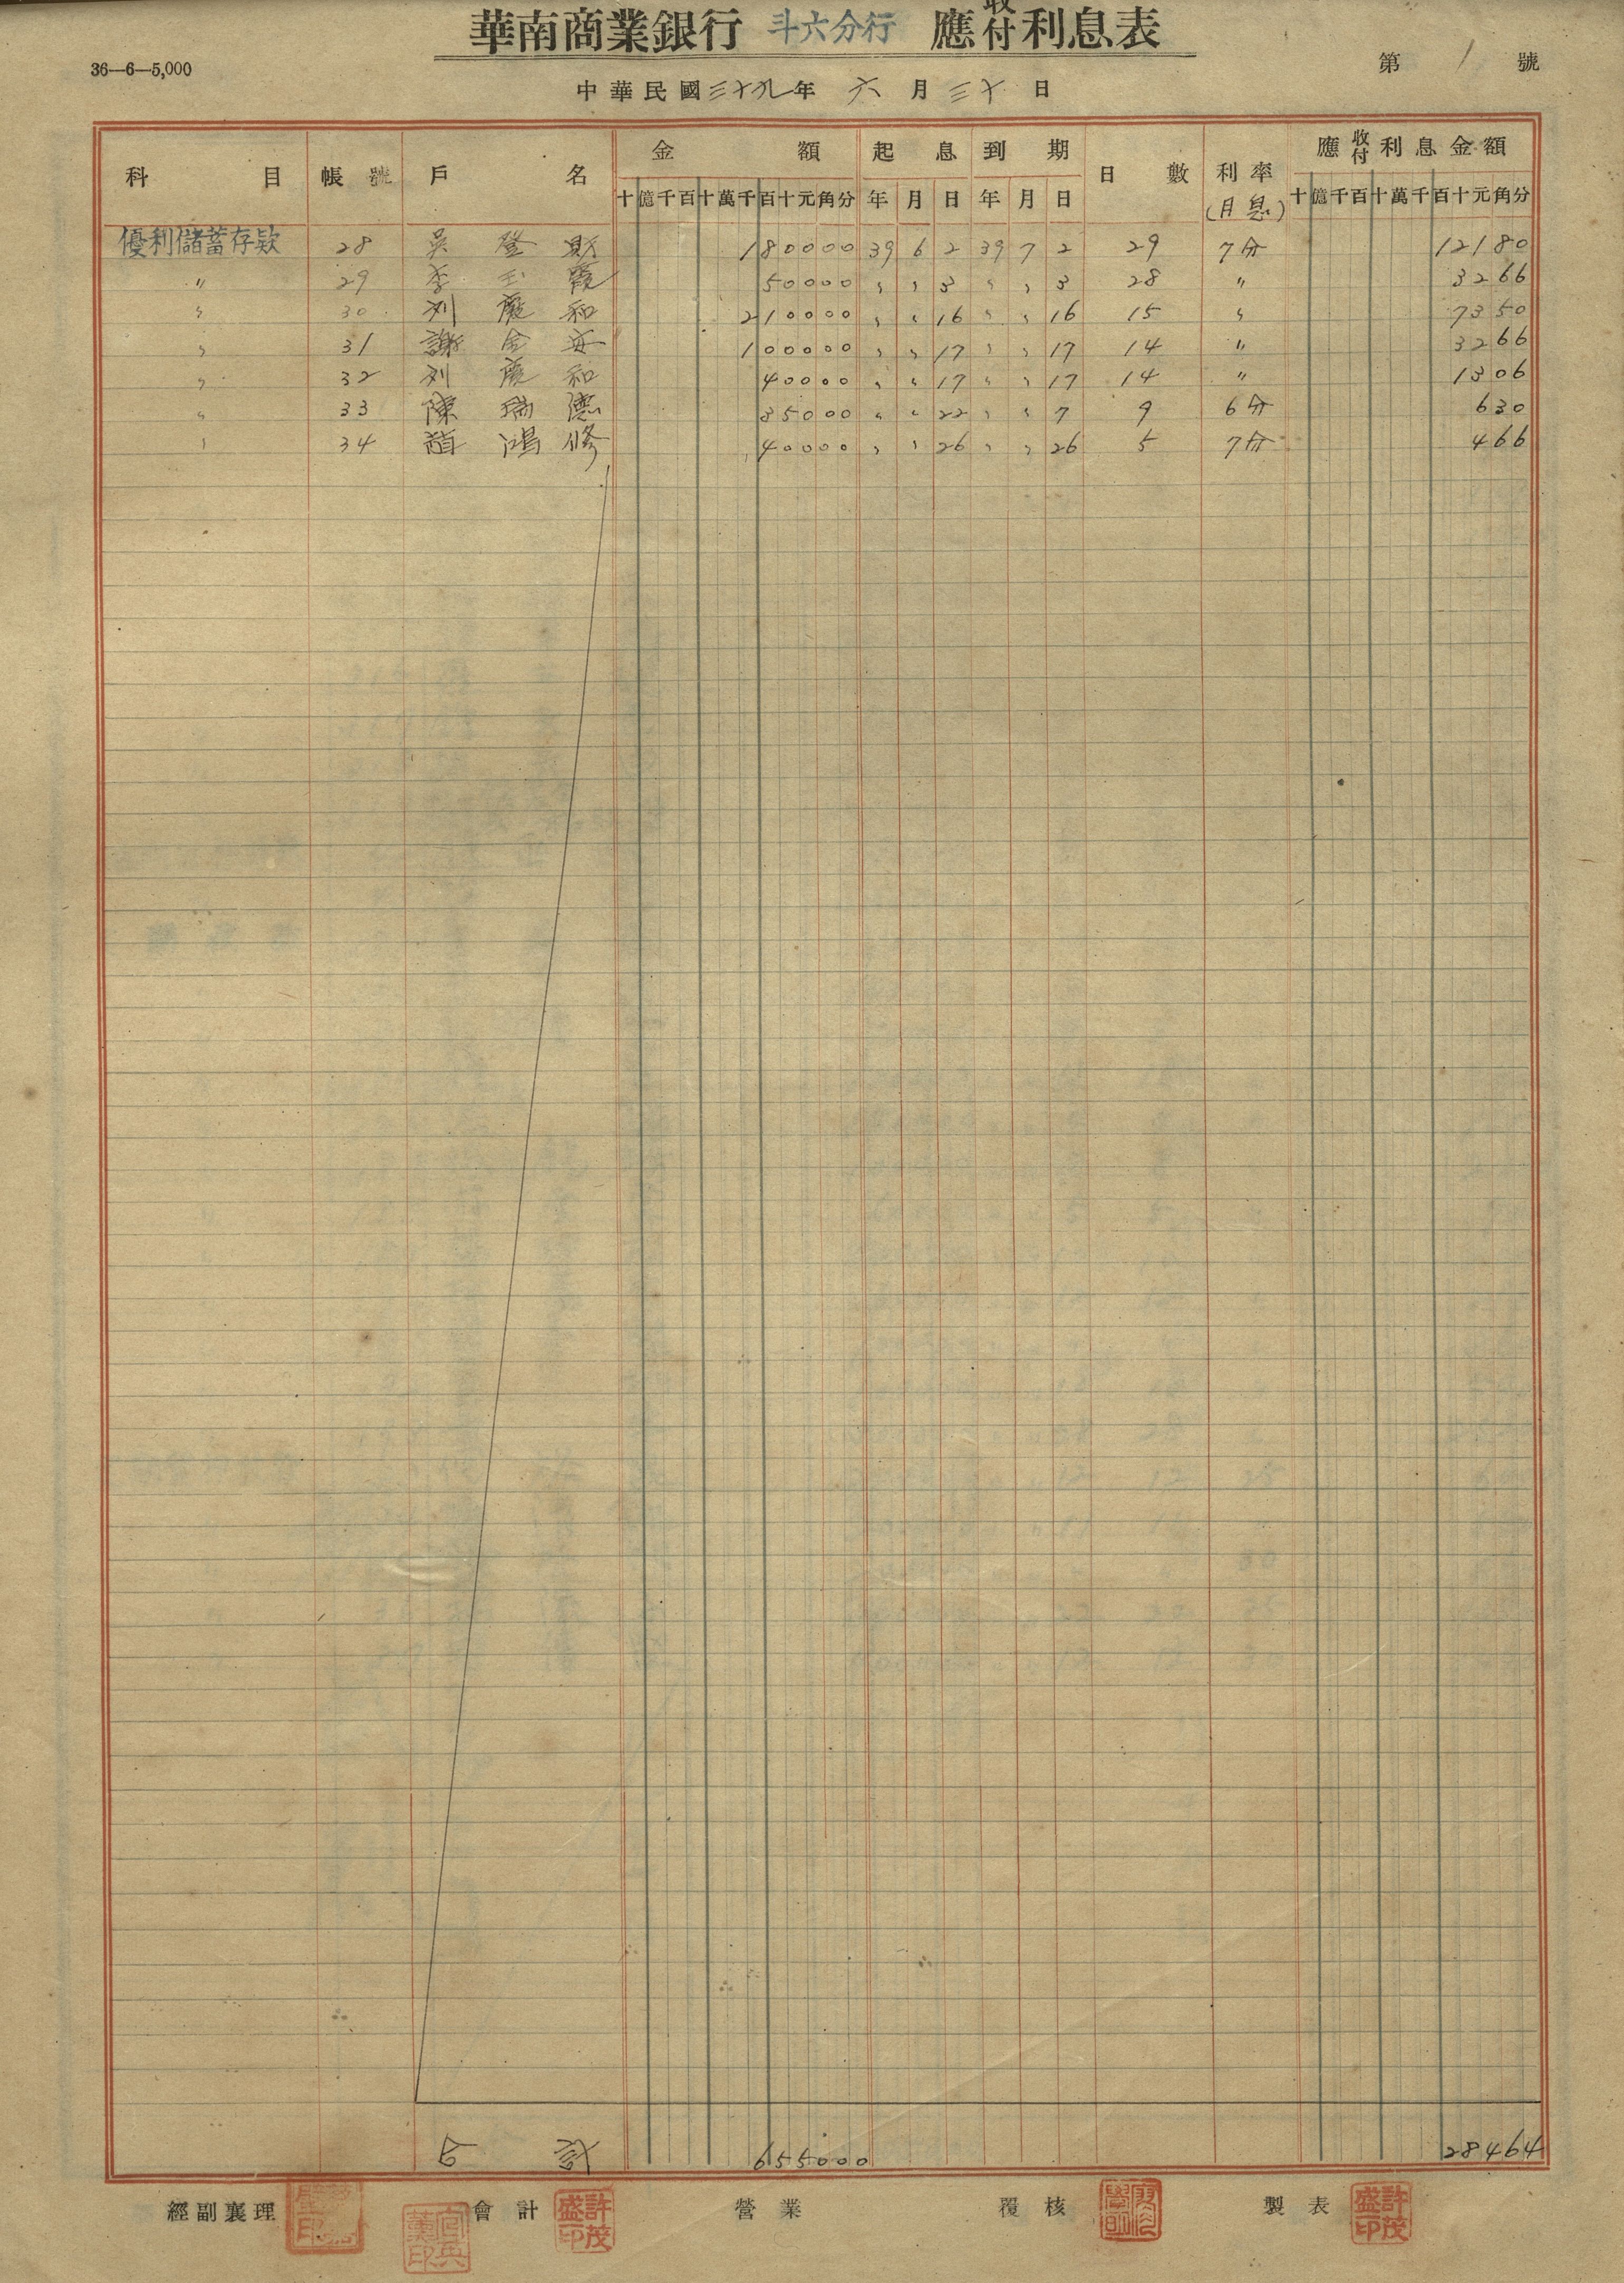 華南商業銀行 斗六分行 應收付利息表
36—6—5,000
第 1 號
中華民國三十九年 六 月 三十 日
科目 帳號 戶名 金額 起息 到期 日數 利率(月息) 應收付利息金額
十億千百十萬千百十元角分 年 月 日 年 月 日 十億千百十萬千百十元角分
優利儲蓄存款 28 吳登財 180000 39 6 2 39 7 2 29 7分 12180
〃 29 李玉霞 50000 〃 〃 3 〃 〃 3 28 〃 3266
〃 30 刘慶和 210000 〃 〃 16 〃 〃 16 15 〃 7350
〃 31 謝金安 100000 〃 〃 17 〃 〃 17 14 〃 3266
〃 32 刘慶和 40000 〃 〃 17 〃 〃 17 14 〃 1306
〃 33 陳瑞德 35000 〃 〃 22 〃 〃 7 9 6分 630
〃 34 鴻修 40000 〃 〃 26 〃 〃 26 5 7分 466
合計 655000 28464
經副襄理 會計 許茂盛印 營業 覆核 製表 許茂盛印